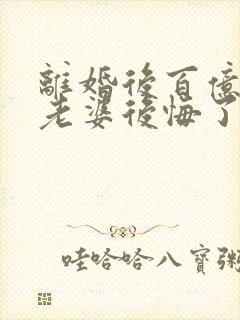 離婚後百億
老婆後悔了
哇哈哈八寶粥